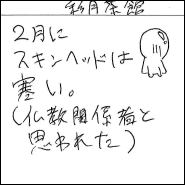 彩月茶館
2月に
スキンヘッドは
寒い。
(仏教関係者と
思われた)